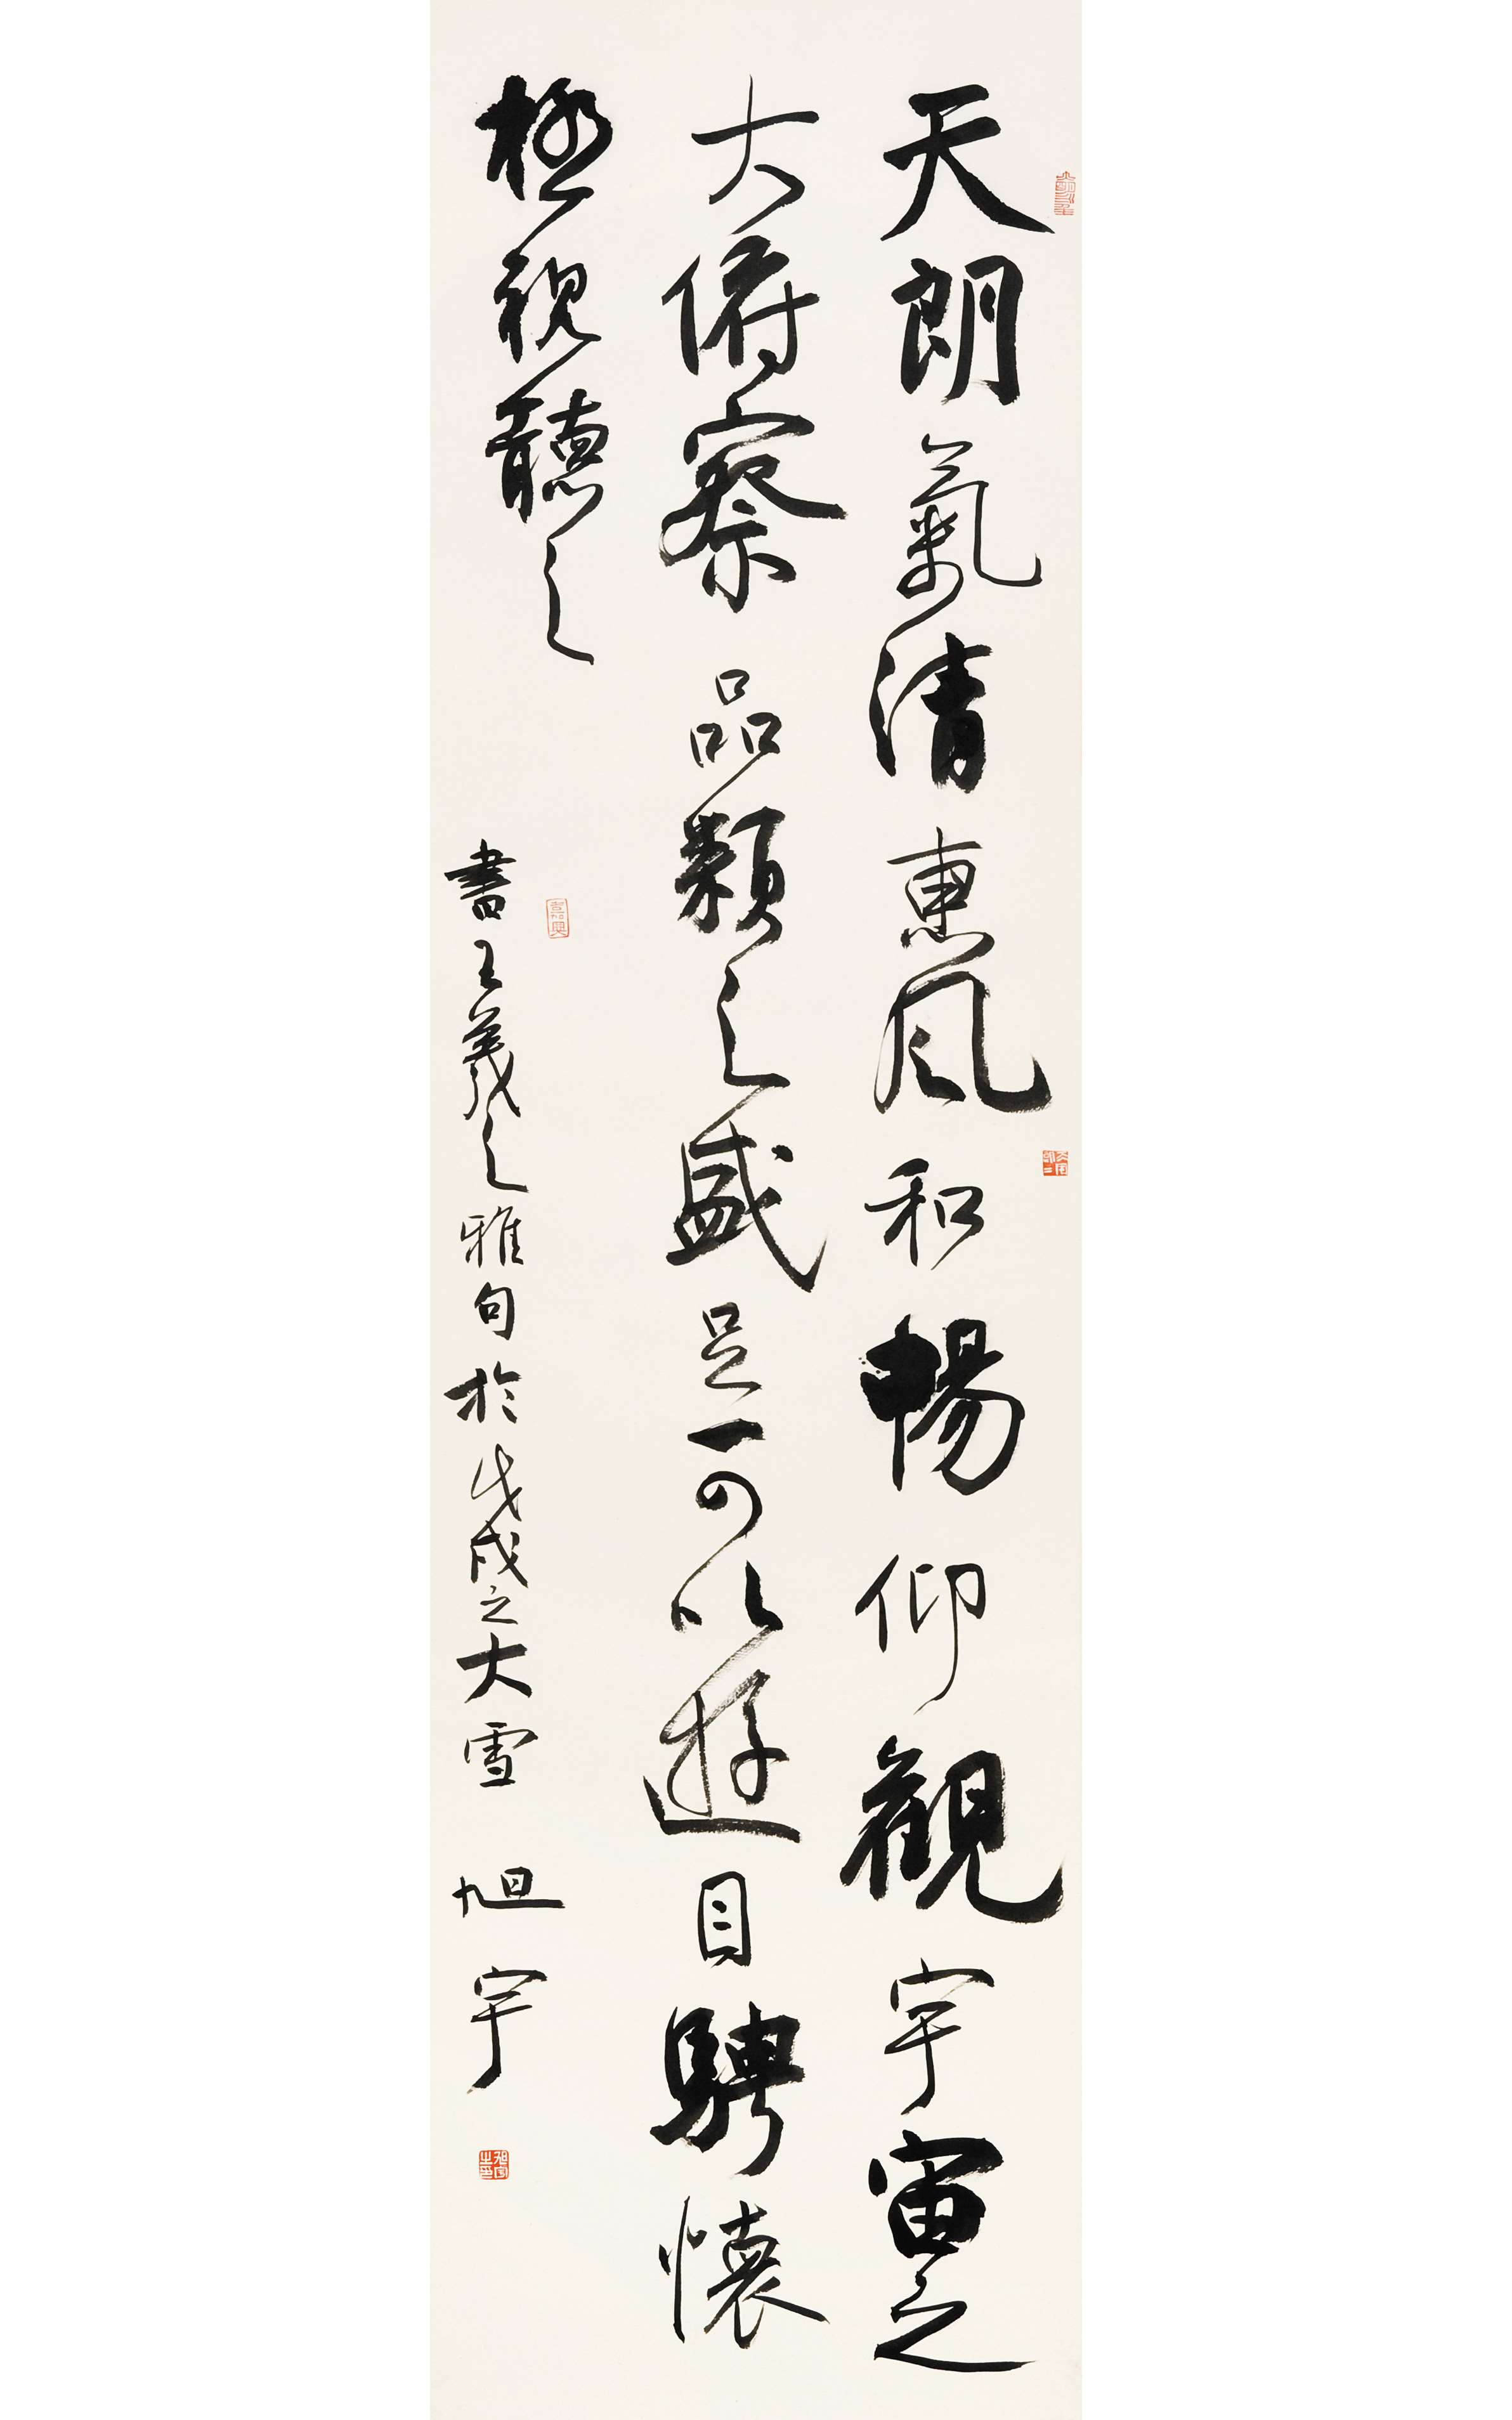 天朗氣清惠風和暢仰觀宇宙之
大俯察品類之盛足可以遊目騁懷
極視聽之
書王羲之雅句於戊戌之大雪
旭宇
旭宇之印